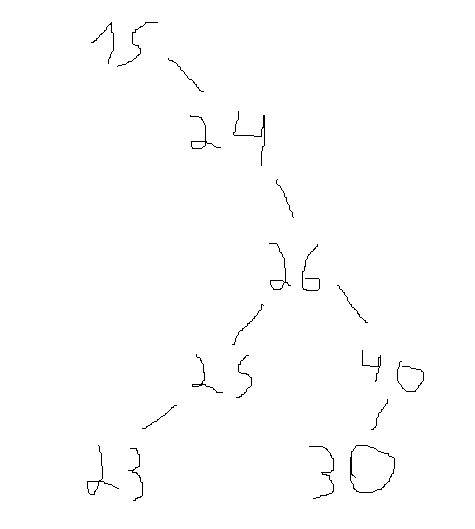 15
24
26
25 40
23 30